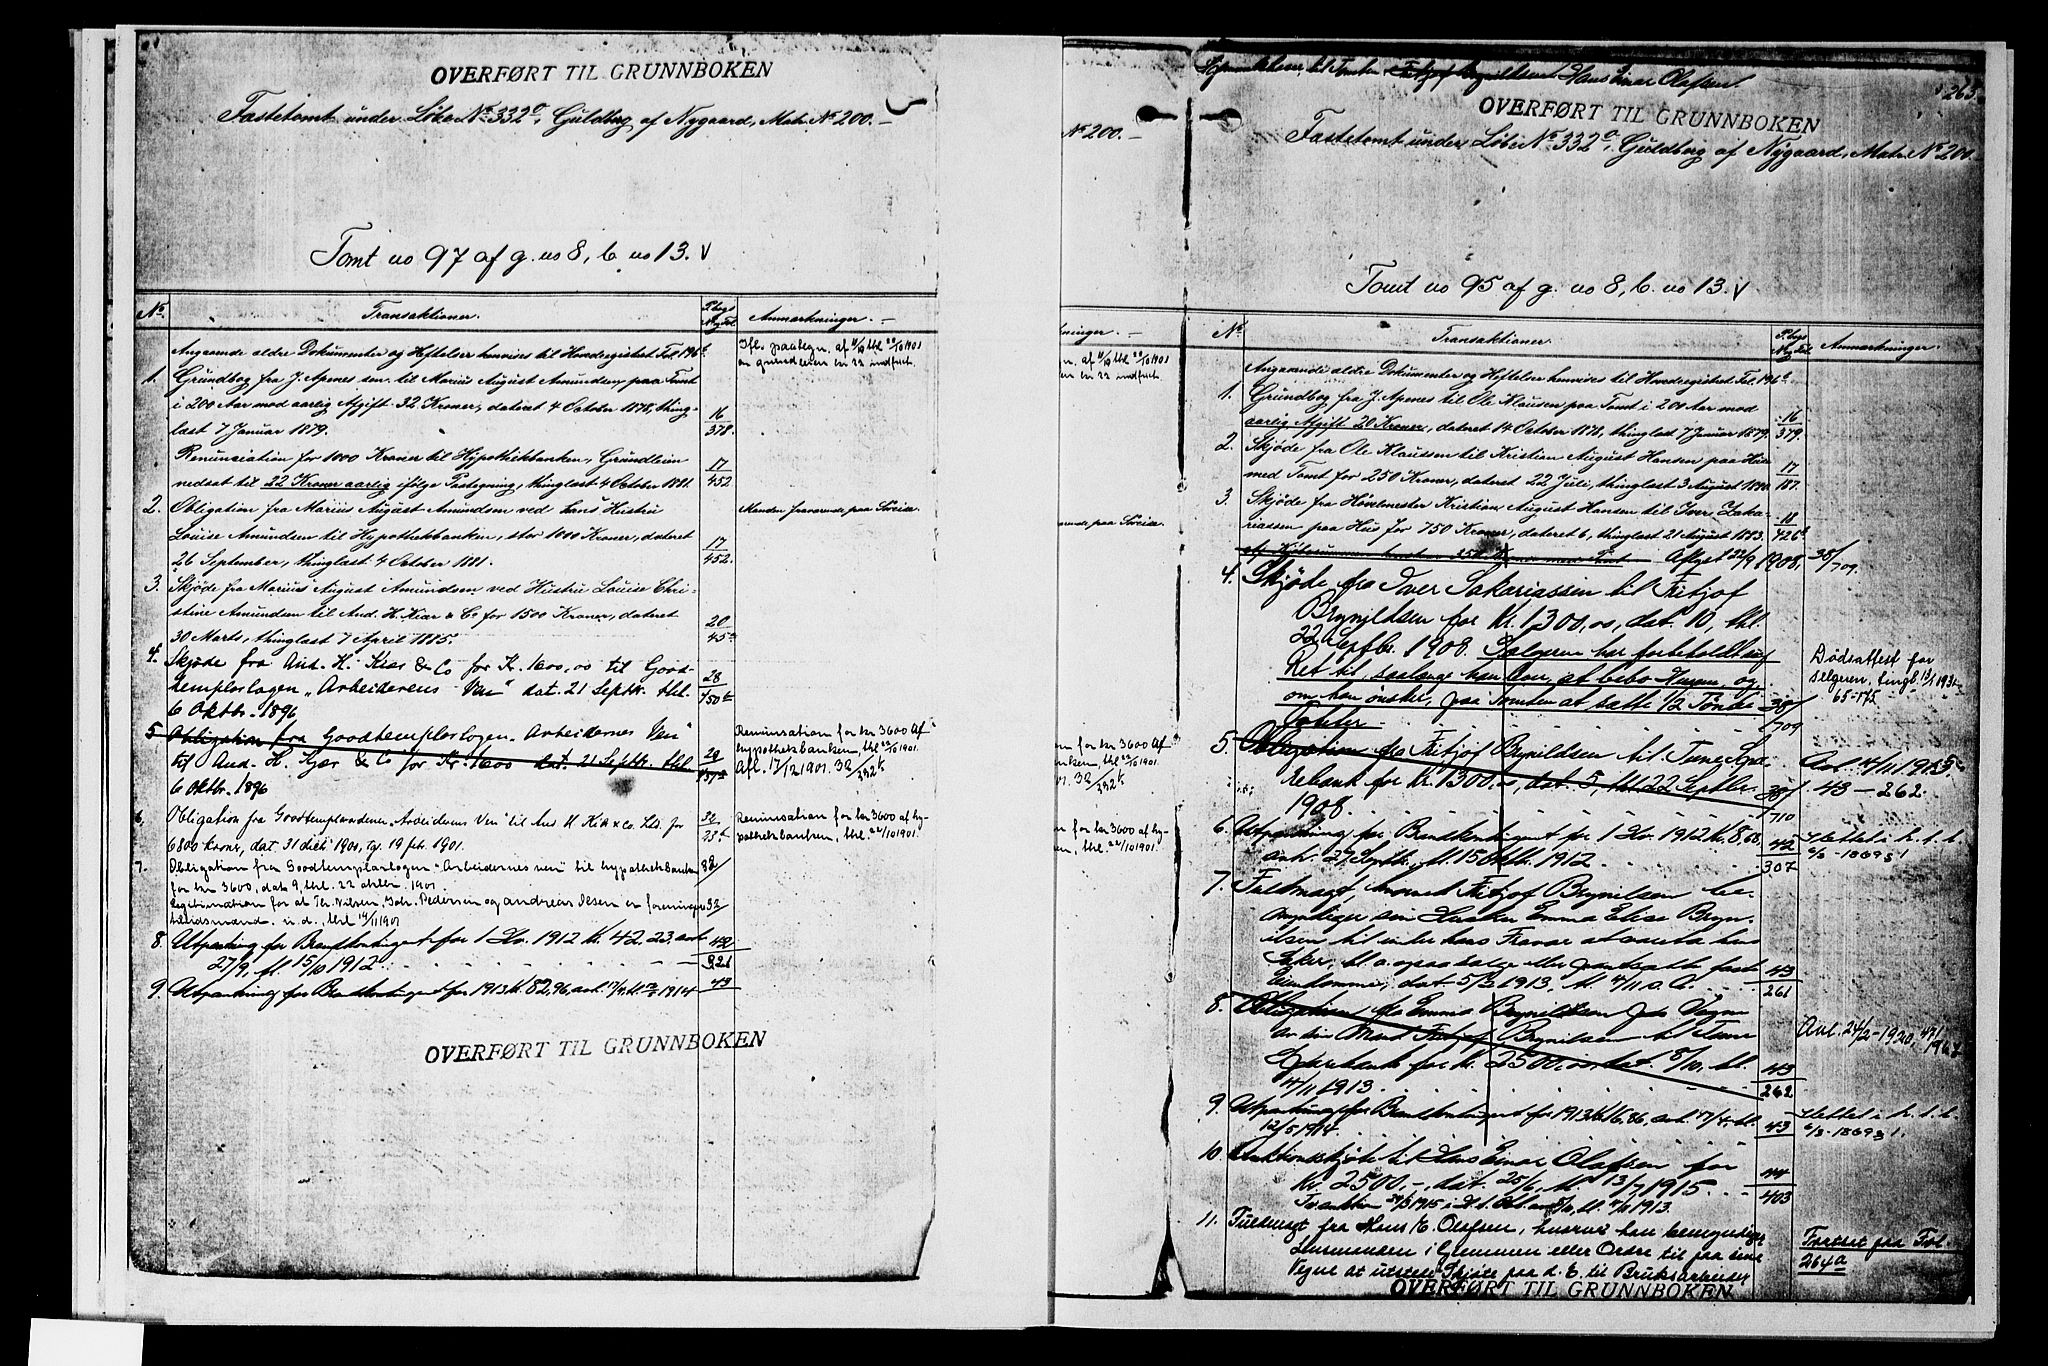 OVERFØRT TIL GRUNNBOKEN
Fastetomt under Løbe No 332a, Guldberg af Nygaard, Matr. No 200. —
Tomt no 97 af g. no 8, b. no 13. V
No Transaktioner. P.bogs Anmærkninger. —
Angaaende ældre Dokumenter og Heftelser henvises til Hovedregistret Fol. 196
1. Grundbog fra J. Apenes sen. til Marius August Amundsen paa Tomt
i 200 Aar mod aarlig Afgift 32 Kroner, dateret 4 October 1878, thing-
læst 7 Januar 1879. 16/378.
Renunciation for 1000 Kroner til Hypothekbanken, Grundleien
nedsat til 22 Kroner aarlig ifølge Paategning, thinglæst 4 October 1881. 17/452
2. Obligation fra Marius August Amundsen ved hans Hustru
Louise Amundsen til Hypothekbanken, stor 1000 Kroner, dateret
26 September, thinglæst 4 October 1881. 17/452.
Manden fraværende paa Søreise.
3. Skjøde fra Marius August Amundsen ved Hustru Louise Chri-
stine Amundsen til And. H. Kiær & Co for 1500 Kroner, dateret
30 Marts, thinglæst 7 April 1885. 20/45
4. Skjøde fra And. H. Kiær & Co for Kr. 1600,00 til Good-
templarlogen „Arbeiderens Ven" dat. 21 Septbr. thl.
6 Oktbr. 1896 28/450
5 Obligation fra Goodtemplarlogen „Arbeidernes Ven"
til And. H. Kjær & Co for Kr. 1600 dat. 21 Septbr. thl.
6 Oktbr. 1896
Renunsation for kr 3600 Af
hypothekbanken, thl 22/10 1901.
Afl. 17/12 1901. 32/332
6, Obligation fra Goodtemplarlogen „Arbeiderens Ven" til And H Kiær & Co. Ltd. for
6800 kroner, dat. 31 dicbr 1900, tgl. 19 febr. 1901.
Renunsation for kr 3600 af hy-
pothekbanken, thl. 22/10 1901.
7. Obligation fra Goodtemplarlogen "Arbeidernes ven" til hypothekbanken
for kr 3600, dat. 9, thl. 22 oktbr. 1901
Legitimation for at Th. Nilsen, Joh. Pedersen og Andreas Olsen er foreningens
tillidsmænd m. d., thl 19/11 1901
8. Utpantning for Brandkontingent for 1 Hv. 1912 Kr. 42,23, avh.
27/9, tl. 15/10 1912. 42/321
9. Utpantning for Brandkontingent for 1913 Kr 82,96, avh. 17/4, tl. 12/5 1914 43
OVERFØRT TIL GRUNNBOKEN
263
Hans Einar Olafsen.
OVERFØRT TIL GRUNNBOKEN
Fastetomt under Løbe No 332a, Guldberg af Nygaard, Matr. No 200.
Tomt no 95 af g. no 8, b. no 13. V
No Transaktioner. P.bogs Anmærkninger.
Angaaende ældre Dokumenter og Heftelser henvises til Hovedregistret Fol. 196
1. Grundbog fra J. Apenes til Ole Klausen paa Tomt i 200 Aar mod
aarlig Afgift 20 Kroner, dateret 14 October 1878, thinglæst 7 Januar 1879. 16/379.
2. Skjøde fra Ole Klausen til Kristian August Hansen paa Hus
med Tomt for 250 Kroner, dateret 22 Juli, thinglæst 3 August 1880. 17/187.
3. Skjøde fra Kristian August Hansen til Iver Zaka-
riassen paa Hus for 750 Kroner, dateret 6, thinglæst 21 August 1883. 18/426
Aflyst 22/9 1908. 38/709.
4. Skjøde fra Iver Sakariassen til Fritjof
Brynildsen for Kr. 1300,00, dat. 10, thl.
22 Septbr. 1908. Sælgeren har forbeholdt sig
Ret til, saalænge han lever, at bebo Husene, og
om han ønsker, paa Tomten at sætte 1/2 Tønde
Poteter. 38/709
Dødsattest for
selgeren, tingl.
65-175
5. Obligation fra Fritjof Brynildsen til Tune Spa-
rebank for Kr. 1300,00, dat. 5, thl 22 Septbr.
1908. 38/710
Avl. 4/11 1913.
43 — 262.
6. Utpantning for Brandkontingent for 1 Hv. 1912 Kr 8,68,
avh. 27 Septbr., tl. 15 Oktbr. 1912. 42/307
Slettet i h. t. l.
6/3 - 1869 § 1
7. Fuldmagt, hvorved Fritjof Brynildsen be-
myndiger sin Hustru Emma Elise Bryn-
ildsen til under hans Fravær at vareta hans
Saker, bl. a. opta at sælge eller pantsætte faste
Eiendomme, dat. 5/3 1913, tl. 4/11 s. A. 43/261
8. Obligation fra Emma Brynildsen paa Vegne
av sin Mand Fritjof Brynildsen til Tune
Sparebank for Kr. 2500,00, dat. 8/10, tl.
4/11 1913. 43/262
Avl. 24/2 - 1920, 47/
9. Utpantning for Brandkontingent for 1913 Kr 16,86, avh. 17/4, tl.
12/5 1914. 43
Slettet i h. t. l.
6/3 - 1869 § 1.
10. Auktionsskjøte til Hans Einar Olafsen for
Kr. 2500,-, dat. 25/6, tl. 13/7 1915. 44/403
11. Fuldmagt fra Hans E. Olafsen, hvorved han bemyndiger
Lensmanden i Glemmen eller Ordre til paa sine
Vegne at utstede Skjøte paa d. E. til Bruksarbeider
Fortsat paa Fol.
264a
OVERFØRT TIL GRUNNBOKEN